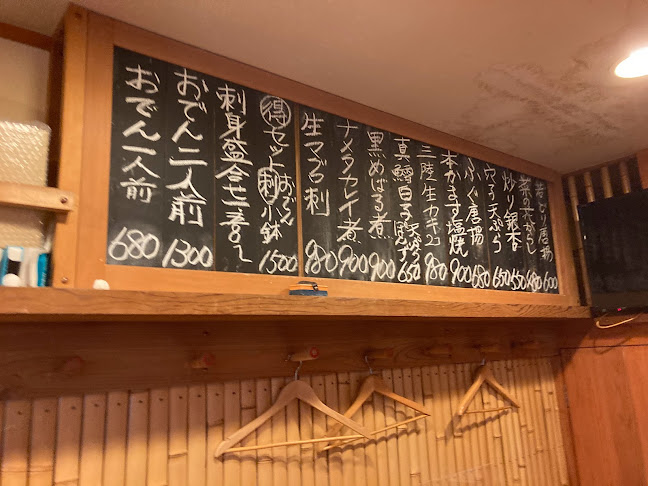 若どり唐揚 600
菜の花からし 480
炒り銀杏 550
穴子天ぷら 650
ふぐ唐揚 680
本かます塩焼 900
三陸生カキ2コ 980
真鱈白子 天ぷら ぽんず 650
黒めばる煮 900
ナメタカレイ煮 900
生マグロ刺 980
得セット おでん 刺 小鉢 1500
刺身盛合せ
おでん二人前 1300
おでん一人前 680